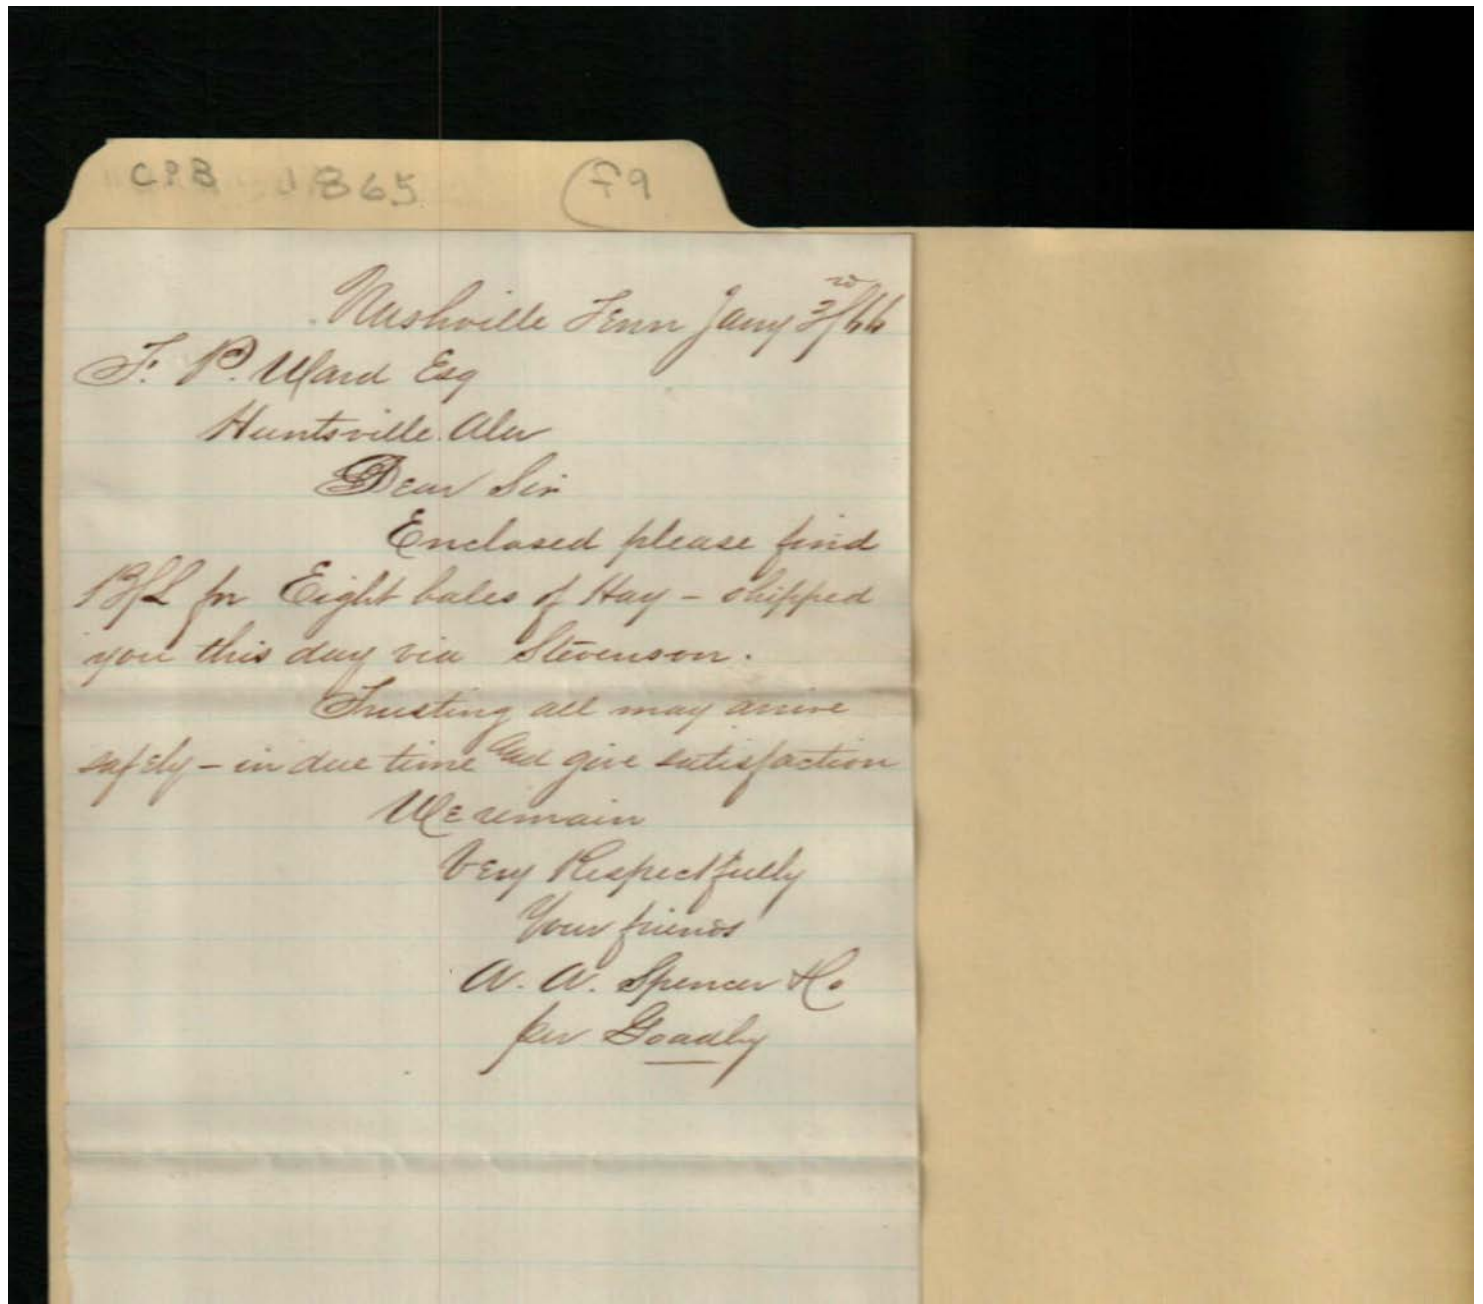 CPB 1865 f9
Nashville Tenn Jany 3rd/66
F. P. Ward Esq
Huntsville Ala
Dear Sir
Enclosed please find
B/L for Eight bales of Hay – shipped
you this day via Stevenson.
Trusting all may arrive
safely – in due time and give satisfaction
We remain
Very Respectfully
Your friends
A. A. Spencer & Co
per Goadby